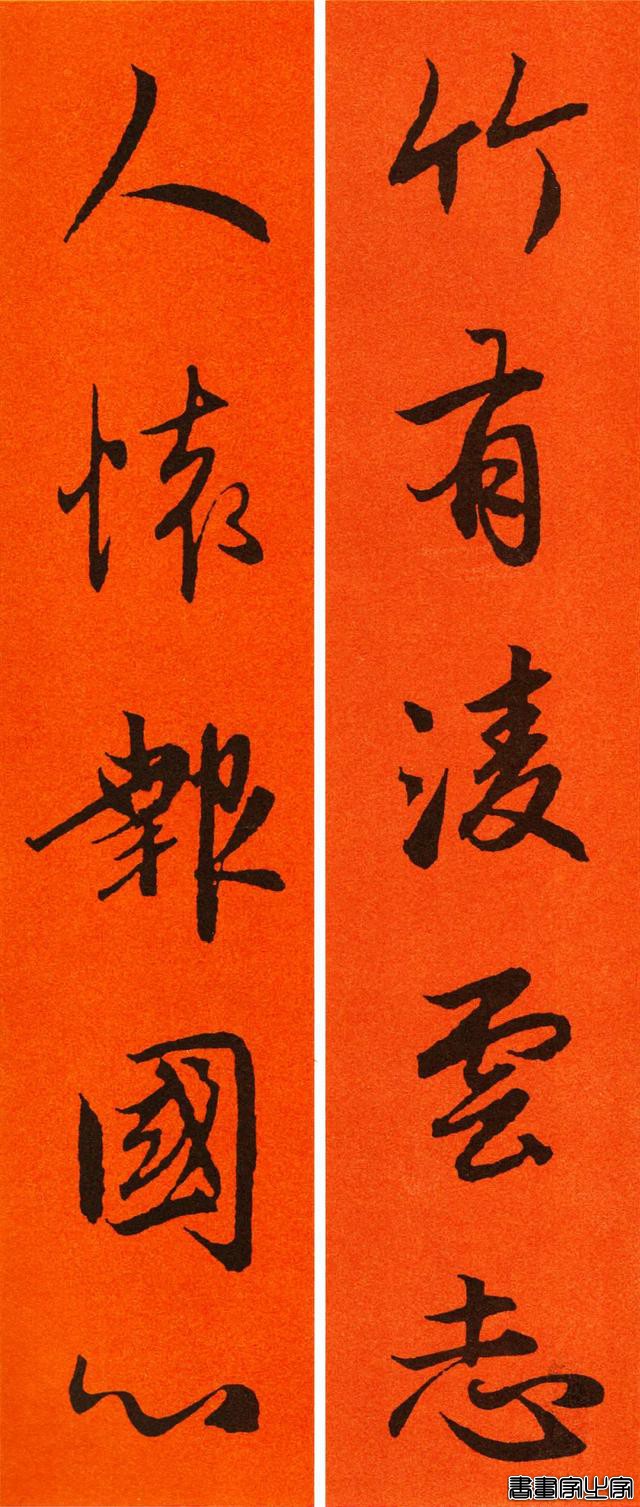 竹有凌雲志
人懷報國心
書畫家之家